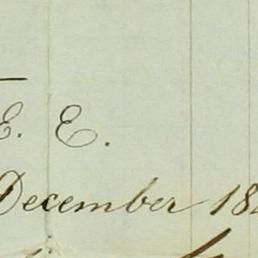 E. E.
December 18